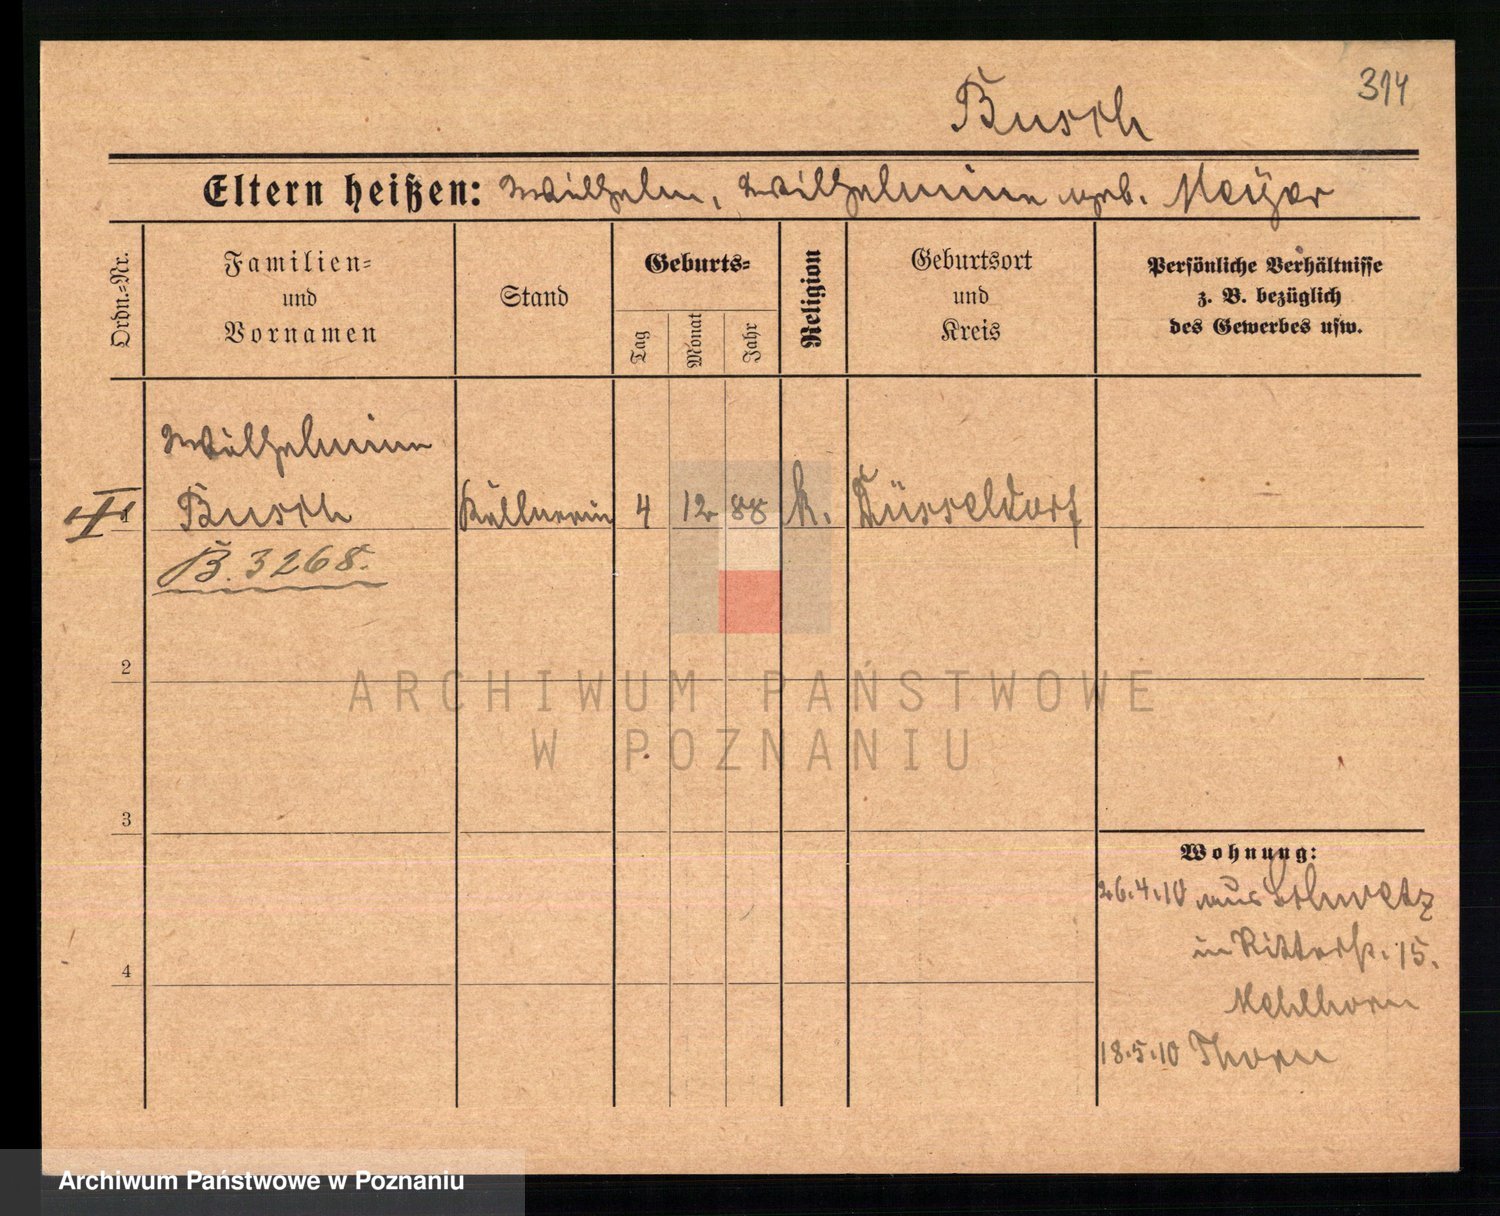 314
Busch
Eltern heißen: Wilhelm, Wilhelmine geb. Meyer
Ordn.-Nr.
Familien-
und
Vornamen
Stand
Geburts-
Tag
Monat
Jahr
Religion
Geburtsort
und
Kreis
Persönliche Verhältnisse
z. B. bezüglich
des Gewerbes usw.
Wilhelmine
1 Busch Kellnerin 4 12 88 k. Düsseldorf
B. 3268.
2
3
4
Wohnung:
26.4.10 aus Schwetz
in Ritterstr. 15.
Mehlhorn
18.5.10 Thorn
ARCHIWUM PAŃSTWOWE
W POZNANIU
Archiwum Państwowe w Poznaniu